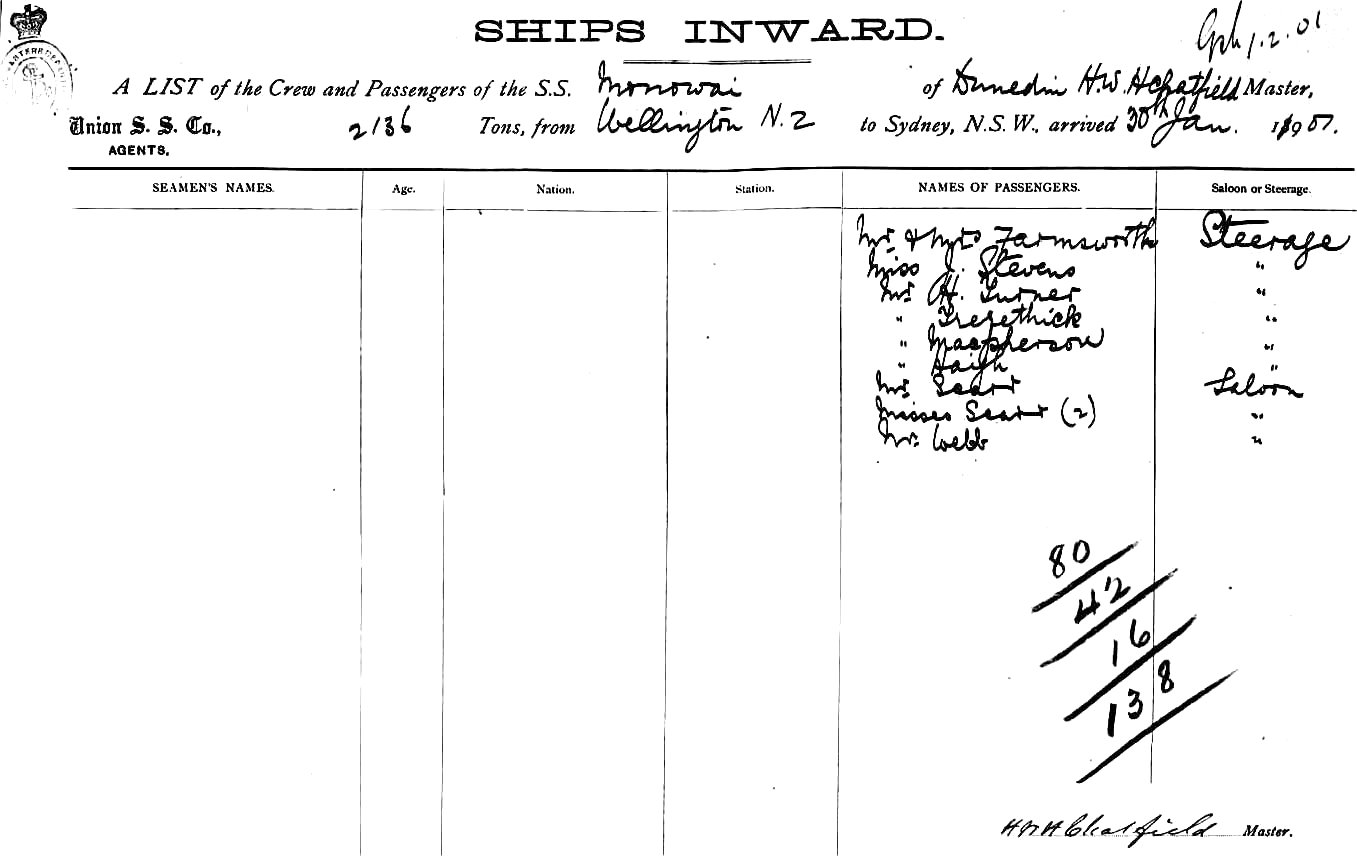 SHIPS INWARD.
1.2.01
A LIST of the Crew and Passengers of the S.S. Monowai of Dunedin H.W.H Chatfield Master,
Union S. S. Co., 2136 Tons, from Wellington N.Z to Sydney, N.S.W., arrived 30th Jan. 1901.
AGENTS.
SEAMEN'S NAMES. Age. Nation. Station. NAMES OF PASSENGERS. Saloon or Steerage.
Mr & Mrs Farmsworth Steerage
Miss J. Stevens "
Mr H. Turner "
" Tregethick "
" Macpherson "
" Haigh "
Mr Scarr Saloon
Misses Scarr (2) "
Mr. Webb "
80
42
16
138
H W H Chatfield Master.